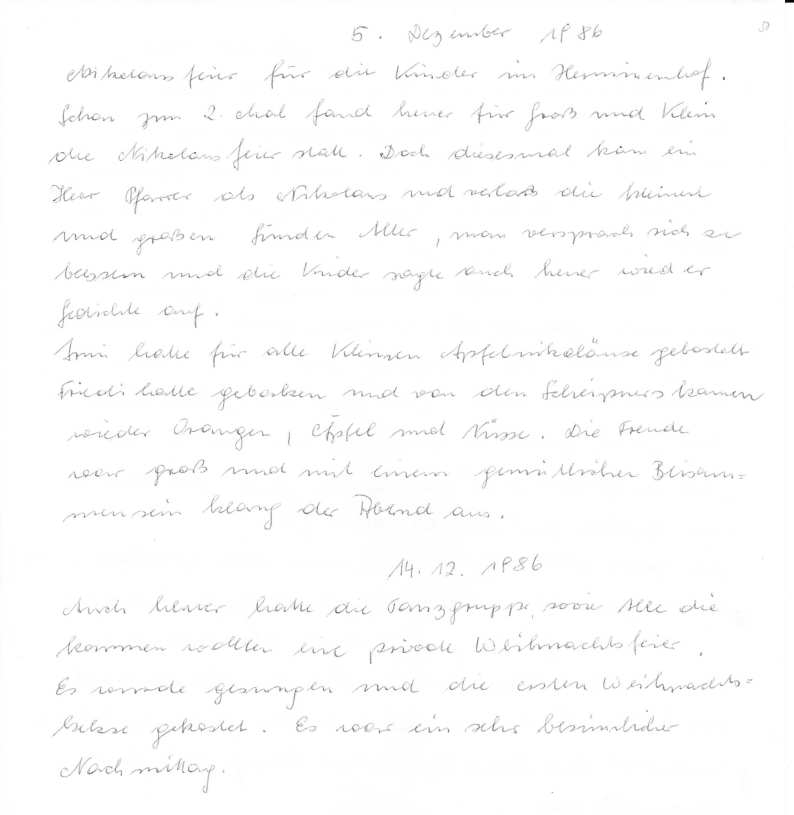 5. Dezember 1986
Nikolausfeier für die Kinder im Herminenhof.
Schon zum 2. Mal fand heuer für Groß und Klein
die Nikolausfeier statt. Doch diesesmal kam ein
Herr Pfarrer als Nikolaus und verlaß die kleinen
und großen Sünden Aller, man versprach sich zu
bessern und die Kinder sagte auch heuer wieder
Gedichte auf.
hatte für alle Kleinen Apfelnikoläuse gebastelt
Friedi hatte gebacken und von den kamen
wieder Orangen, Äpfel und Nüsse. Die Freude
war groß und mit einem gemütlichen Beisam=
mensein klang der Abend aus.
14.12.1986
Auch heuer hatte die Tanzgruppe, sowie Alle die
kommen wollten eine private Weihnachtsfeier.
Es wurde gesungen und die ersten Weihnachts=
kekse gekostet. Es war ein sehr besinnlicher
Nachmittag.